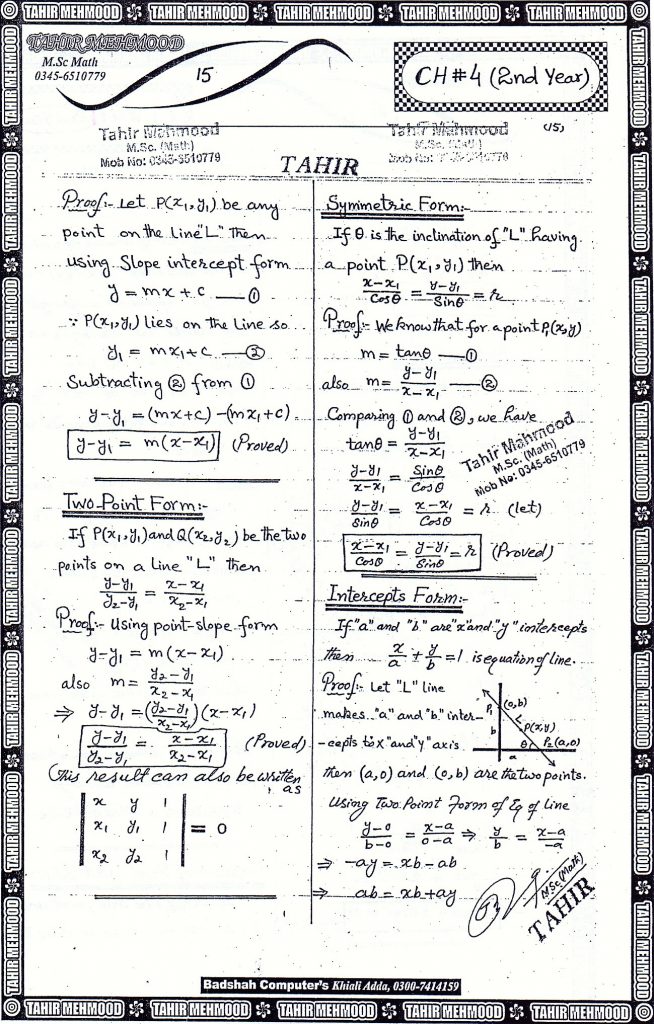 TAHIR MEHMOOD TAHIR MEHMOOD TAHIR MEHMOOD TAHIR MEHMOOD TAHIR MEHMOOD
TAHIR MEHMOOD
M.Sc Math
0345-6510779
15
CH #4 (2nd Year)
Tahir Mahmood
M.Sc. (Math)
Mob No: 0345-6510779
Tahir Mahmood
(15)
TAHIR
Proof:- Let P(x₁,y₁) be any
point on the line "L" then
using Slope intercept form
y = mx + c —①
∵ P(x₁,y₁) lies on the Line so
y₁ = mx₁+c —②
Subtracting ② from ①
y-y₁ = (mx+c)-(mx₁+c)
y-y₁ = m(x-x₁) (Proved)
Two Point Form:-
If P(x₁,y₁) and Q(x₂,y₂) be the two
points on a line "L" then
(y-y₁)/(y₂-y₁) = (x-x₁)/(x₂-x₁)
Proof:- Using point-slope form
y-y₁ = m(x-x₁)
also m = (y₂-y₁)/(x₂-x₁)
⇒ y-y₁ = ((y₂-y₁)/(x₂-x₁))(x-x₁)
(y-y₁)/(y₂-y₁) = (x-x₁)/(x₂-x₁) (Proved)
This result can also be written
as
| x y 1 |
| x₁ y₁ 1 | = 0
| x₂ y₂ 1 |
Symmetric Form:-
If θ is the inclination of "L" having
a point P(x₁,y₁) then
(x-x₁)/Cosθ = (y-y₁)/Sinθ = r
Proof:- We know that for a point P₁(x,y)
m = tanθ —①
also m = (y-y₁)/(x-x₁) —②
Comparing ① and ②, we have
tanθ = (y-y₁)/(x-x₁)
Tahir Mahmood
M.Sc. (Math)
Mob No: 0345-6510779
(y-y₁)/(x-x₁) = Sinθ/Cosθ
(y-y₁)/Sinθ = (x-x₁)/Cosθ = r (let)
(x-x₁)/Cosθ = (y-y₁)/Sinθ = r (Proved)
Intercepts Form:-
If "a" and "b" are "x" and "y" intercepts
then x/a + y/b = 1 is equation of line.
Proof:- Let "L" line
makes "a" and "b" inter-
-cepts to x "and "y" axis
P₁ (0,b)
L
P(x,y)
b
θ P₂(a,0)
a
then (a,0) and (0,b) are the two points.
Using Two Point Form of Eq of Line
(y-0)/(b-0) = (x-a)/(0-a) ⇒ y/b = (x-a)/-a
⇒ -ay = xb-ab
⇒ ab = xb+ay
M.Sc (Math)
TAHIR
Badshah Computer's Khiali Adda, 0300-7414159
TAHIR MEHMOOD TAHIR MEHMOOD TAHIR MEHMOOD TAHIR MEHMOOD TAHIR MEHMOOD